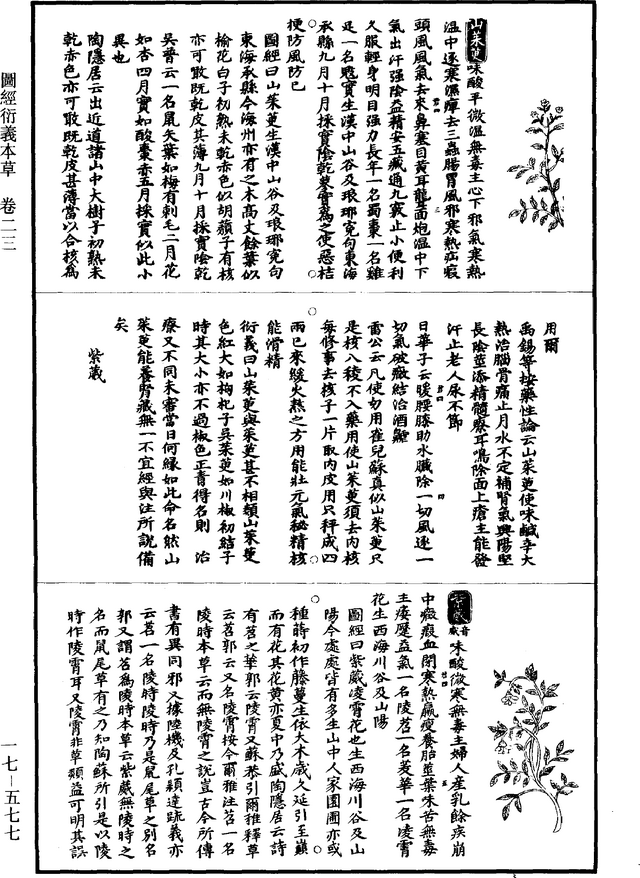 圖經衍義本草　卷二三
山茱萸味酸平微溫無毒主心下邪氣寒熱
溫中逐寒濕痺去三蟲腸胃風邪寒熱疝瘕
頭風風氣去來鼻塞目黃耳聾面皰溫中下
氣出汗强陰益精安五藏通九竅止小便利
久服輕身明目强力長年一名蜀棗一名雞
足一名鬾實生漢中山谷及琅琊寃句東海
承縣九月十月採實陰乾蓼實爲之使惡桔
梗防風防已
圖經曰山茱萸生漢中山谷及琅琊寃句
東海承縣今海州亦有之木高丈餘葉似
榆花白子初熟未乾赤色似胡頹子有核
亦可噉既乾皮其薄九月十月採實陰乾
吳普云一名鼠矢葉如梅有刺毛二月花
如杏四月實如酸棗赤五月採實似此小
異也
陶隱居云出近道諸山中大樹子初熟未
乾赤色亦可噉既乾皮甚薄當以合核爲
用爾
禹錫等按藥性論云山茱萸使味鹹辛大
熱治腦骨痛止月水不定補腎氣興陽堅
長陰莖添精髓療耳鳴除面上瘡主能發
汗止老人尿不節
日華子云暖腰膝助水臟除一切風逐一
切氣破癥結治酒皶
雷公云凡使勿用雀兒蘇真似山茱萸只
是核八稜不入藥用使山茱萸須去内核
每修事去核子一片取内皮用只秤成四
兩已來緩火熬之方用能壯元氣秘精核
能滑精
衍義曰山茱萸與茱萸甚不相類山茱萸
色紅大如枸杞子吳茱萸如川椒初結子
時其大小亦不過椒色正青得名則　治
療又不同未審當日何緣如此命名然山
茱萸能養腎臟無一不宜經與注所說備
矣
紫葳
紫葳音威味酸微寒無毒主婦人産乳餘疾崩
中癥瘕血閉寒熱羸瘦養胎莖葉味苦無毒
主痿蹷益氣一名陵苕一名茇華一名陵霄
花生西海川谷及山陽
圖經曰紫葳凌霄花也生西海川谷及山
陽今處處皆有多生山中人家園圃亦或
種蒔初作藤蔓生依大木歲久延引至巔
而有花其花黃赤夏中乃盛陶隱居云詩
有苕之華郭云陵霄又蘇恭引爾雅釋草
云苕郭云又名陵霄按今爾雅注苕一名
陵時本草云而無陵霄之說豈古今所傳
書有異同邪又據陸機及孔穎達疏義亦
云苕一名陵時陵時乃是鼠尾草之別名
郭又謂苕爲陵時本草云紫葳無陵時之
名而鼠尾草有之乃知陶蘇所引是以陵
時作陵霄耳又陵霄非草類益可明其誤
一七—五七七